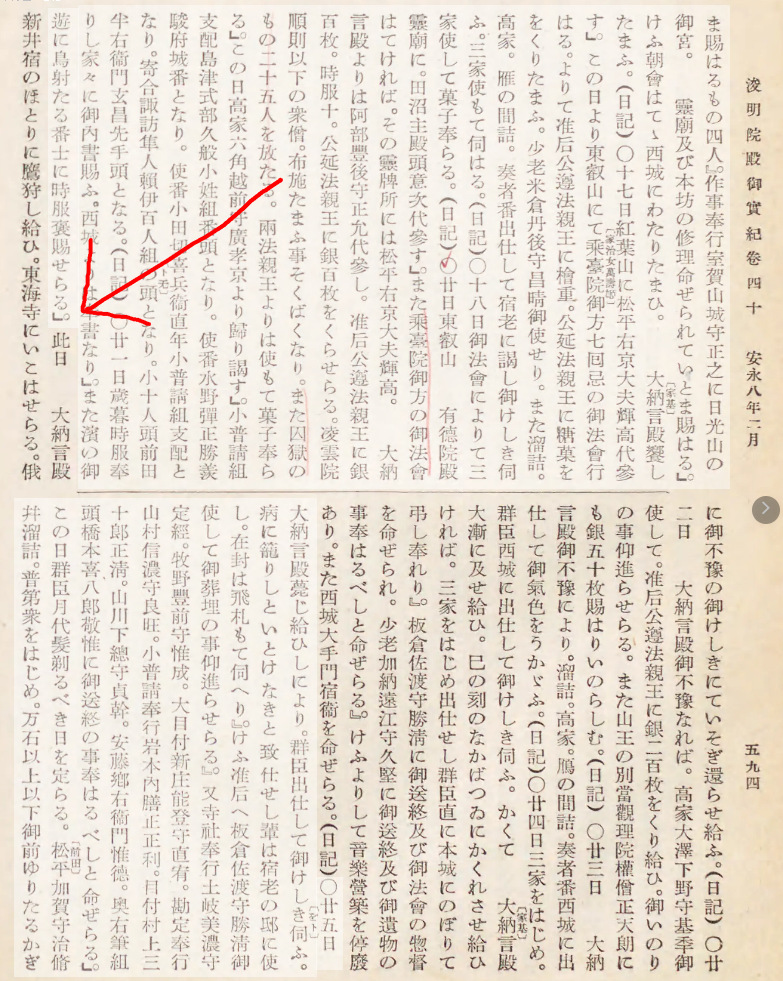 浚明院殿御實紀卷四十　安永八年二月
五九四
ま賜はるもの四人』作事奉行室賀山城守正之に日光山の
御宮。　靈廟及び本坊の修理命ぜられていとま賜はる。』
けふ朝會はてゝ西城にわたりたまひ。　大納言殿饗し
〔家基〕
たまふ。(日記)〇十七日紅葉山に松平右京大夫輝高代參
す』この日より東叡山にて乘臺院御方七回忌の御法會行
〔家治女萬壽姬〕
はる。よりて准后公遵法親王に檜重。公延法親王に糖菓を
をくりたまふ。少老米倉丹後守昌晴御使せり。また溜詰。
高家。雁の間詰。奏者番出仕して宿老に謁し御けしき伺
ふ。三家使もて伺はる。(日記)〇十八日御法會によりて三
家使して菓子奉らる。(日記)〇廿日東叡山　有德院殿
靈廟に。田沼主殿頭意次代參す。』また乘臺院御方の御法會
はてければ。その靈牌所には松平右京大夫輝高。　大納
言殿よりは阿部豐後守正允代參し。准后公遵法親王に銀
百枚。時服十。公延法親王に銀百枚をくらせらる。凌雲院
順則以下の衆僧。布施たまふ事そくばくなり。また囚獄の
もの二十五人を放たる。　兩法親王よりは使もて菓子奉ら
る。』この日高家六角越前守廣孝京より歸り謁す』小普請組
支配島津式部久般小姓組番頭となり。使番水野彈正勝羨
駿府城番となり。　使番小田切喜兵衞直年小普請組支配と
なり。寄合諏訪隼人賴伊百人組の頭となり。小十人頭前田
半右衞門玄昌先手頭となる。(日記)〇廿一日歲暮時服奉
りし家々に御內書賜ふ。西城
書なり』また濱の御
遊に鳥射たる番士に時服褒賜せらる。』此日　大納言殿
新井宿のほとりに鷹狩し給ひ。東海寺にいこはせらる。俄
に御不豫の御けしきにていそぎ還らせ給ふ。(日記)〇廿
二日　大納言殿御不豫なれば。高家大澤下野守基季御
使して。准后公遵法親王に銀二百枚をくり給ひ。御いのり
の事仰進らせらる。また山王の別當觀理院權僧正天朗に
も銀五十枚賜はりいのらしむ。(日記)〇廿三日　大納
言殿御不豫により。溜詰。高家。鴈の間詰。奏者番西城に出
仕して御氣色をうかゞふ。(日記)〇廿四日三家をはじめ。
群臣西城に出仕して御けしき伺ふ。かくて　大納言殿
〔家基〕
大漸に及せ給ひ。巳の刻のなかばつゐにかくれさせ給ひ
ければ。三家をはじめ出仕せし群臣直に本城にのぼりて
弔し奉れり』板倉佐渡守勝淸に御送終及び御法會の惣督
を命ぜられ。少老加納遠江守久堅に御送終及び御遺物の
事奉はるべしと命ぜらる』けふよりして音樂營築を停廢
あり。また西城大手門宿衞を命ぜらる。(日記)〇廿五日
大納言殿薨じ給ひしにより。群臣出仕して御けしき伺ふ。
病に籠りしといとけなきと致仕せし輩は宿老の邸に使
し。在封は飛札もて伺へり』けふ准后へ板倉佐渡守勝淸御
使して御葬埋の事仰進らせらる』又寺社奉行土岐美濃守
定經。牧野豐前守惟成。大目付新庄能登守直宥。勘定奉行
山村信濃守良旺。小普請奉行岩本內膳正正利。目付村上三
十郎正淸。山川下總守貞幹。安藤鄕右衞門惟德。奧右筆組
頭橋本喜八郎敬惟に御送終の事奉はるべしと命ぜらる。』
この日群臣月代髮剃るべき日を定らる。　松平加賀守治脩
〔前田〕
幷溜詰。普第衆をはじめ。万石以上以下御前ゆりたるかぎ